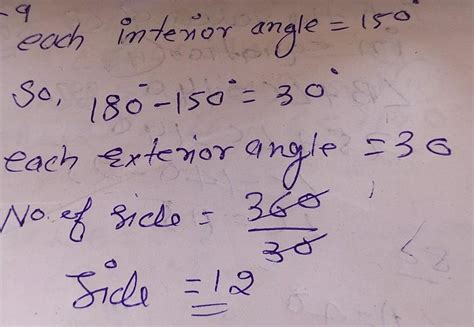 -9
each interior angle = 150°
So, 180° - 150° = 30°
each Exterior angle = 30
No. of Side = 360/30
Side = 12